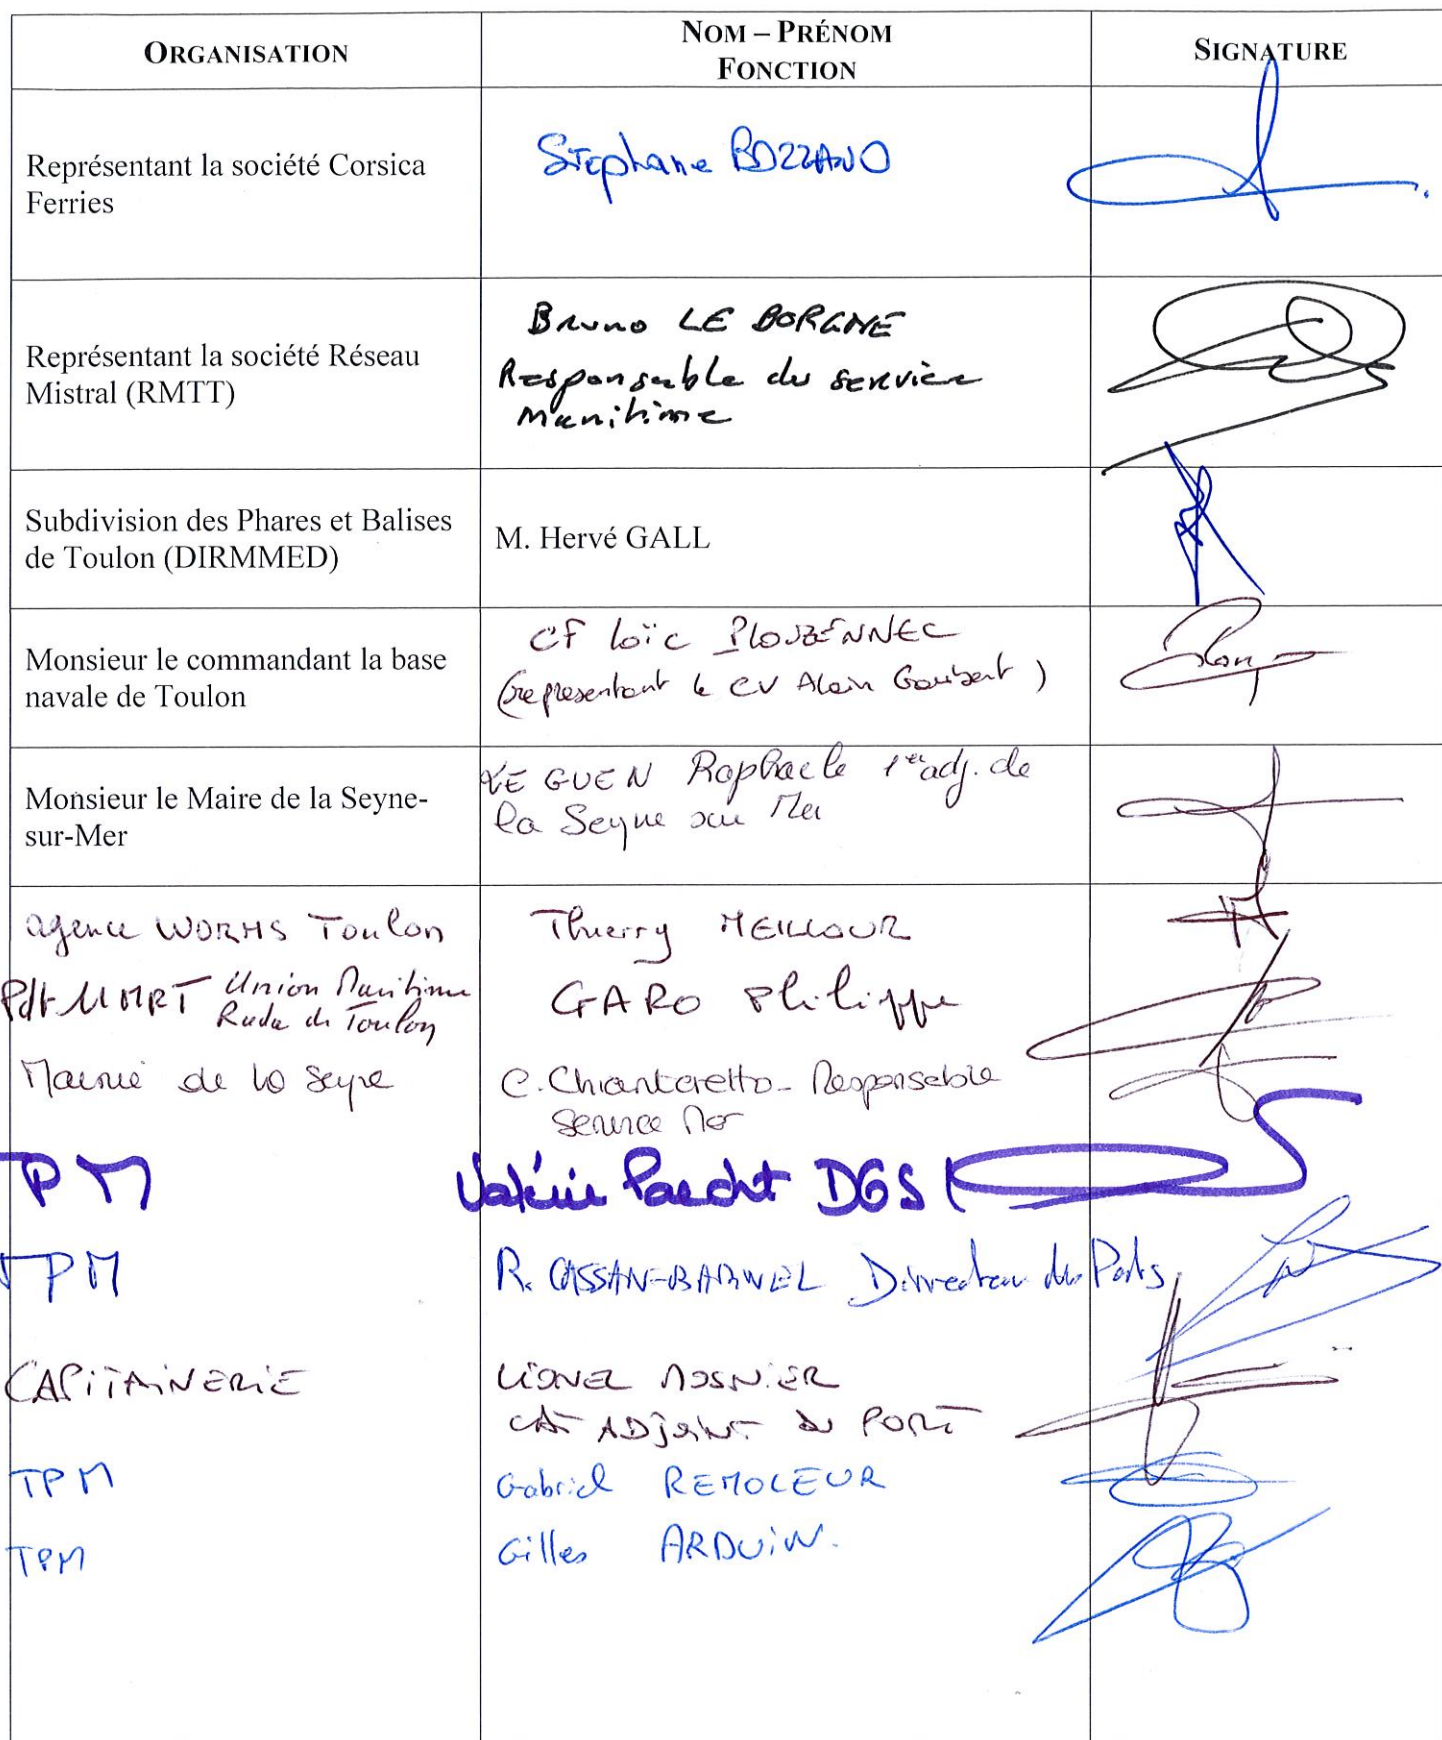 ORGANISATION
NOM – PRÉNOM
FONCTION
SIGNATURE
Représentant la société Corsica
Ferries
Stephane BOZZANO
Représentant la société Réseau
Mistral (RMTT)
Bruno LE BORGNE
Responsable du service
Maritime
Subdivision des Phares et Balises
de Toulon (DIRMMED)
M. Hervé GALL
Monsieur le commandant la base
navale de Toulon
CF Loïc PLOUZENNEC
(représentant le CV Alain Goubert)
Monsieur le Maire de la Seyne-
sur-Mer
LE GUEN Raphaele 1er adj. de
la Seyne sur Mer
agence WORMS Toulon
Thierry MEILLOUR
Pdt UMRT Union Maritime
Rade de Toulon
GARO Philippe
Mairie de la Seyne
C. Chianteretto - Responsable
Service Mer
TPM
Valérie DGS
TPM
R. CASSAN-BARNEL Directeur des Ports
CAPITAINERIE
LIONEL MOSNIER
CDT ADJOINT DU PORT
TPM
Gabriel REMOLEUR
TPM
Gilles ARDUIN.